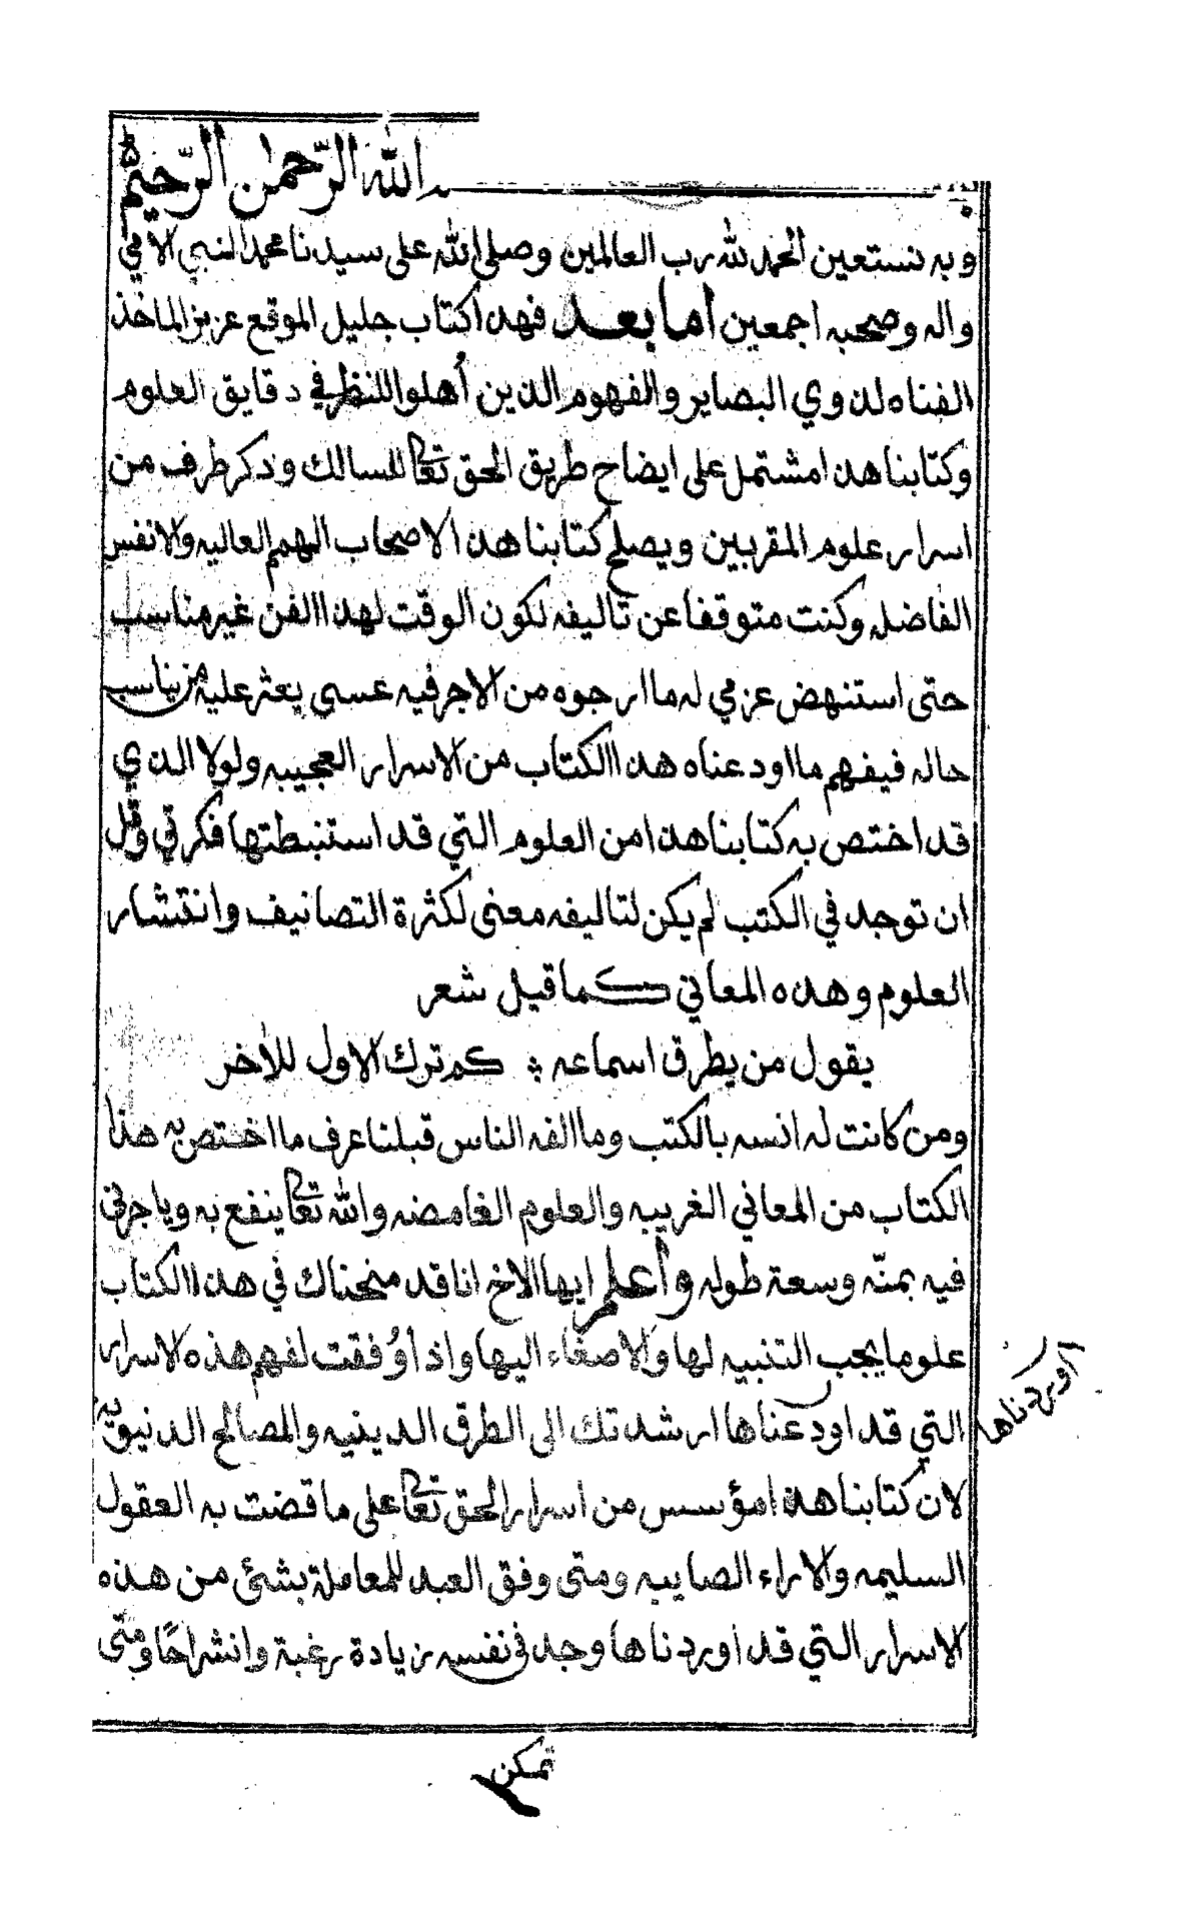 بسم الله الرّحمٰن الرّحيم
وبه نستعين الحمد لله رب العالمين وصلى الله على سيدنا محمد النبي الامي
واله وصحبه اجمعين اما بعد فهدا كتاب جليل الموقع عزيز الماخذ
الفناه لدوي البصاير والفهوم الدين أهلوا للنظر في دقايق العلوم
وكتابنا هدا مشتمل على ايضاح طريق الحق تعالى للسالك ودكر طرف من
اسرار علوم المقربين ويصلح كتابنا هدا لاصحاب الهمم العاليه والانفس
الفاضله وكنت متوقفا عن تاليفه لكون الوقت لهدا الفن غير مناسب
حتى استنهض عزمي له ما ارجوه من الاجر فيه عسى يعثر عليه من يناسب
حاله فيفهم ما اودعناه هدا الكتاب من الاسرار العجيبه ولولا الدي
قد اختص به كتابنا هدا من العلوم التي قد استنبطتها فكرتي وقل
ان توجد في الكتب لم يكن لتاليفه معنى لكثرة التصانيف وانتشار
العلوم وهده المعاني كما قيل شعر
يقول من يطرق اسماعه ؛ كم ترك الاول للاخر
ومن كانت له انسه بالكتب وما الفه الناس قبلنا عرف ما اختص به هذا
الكتاب من المعاني الغريبه والعلوم الغامضه والله تعالى ينفع به وياجرني
فيه بمنّه وسعة طوله وأعلم ايها الاخ انا قد منحناك في هدا الكتاب
علوما يجب التنبيه لها والاصغاء اليها واذا وُفقت لفهم هذه الاسرار
التي قد اودعناها ارشدتك الى الطرق الدينيه والمصالح الدنيويه
اوردناها
لان كتابنا هدا مؤسس من اسرار الحق تعالى على ما قضت به العقول
السليمه والاراء الصايبه ومتى وفق العبد للمعاملة بشئ من هده
الاسرار التي قد اوردناها وجد في نفسه زيادة رغبة وانشراحًا ومتى
تمكن